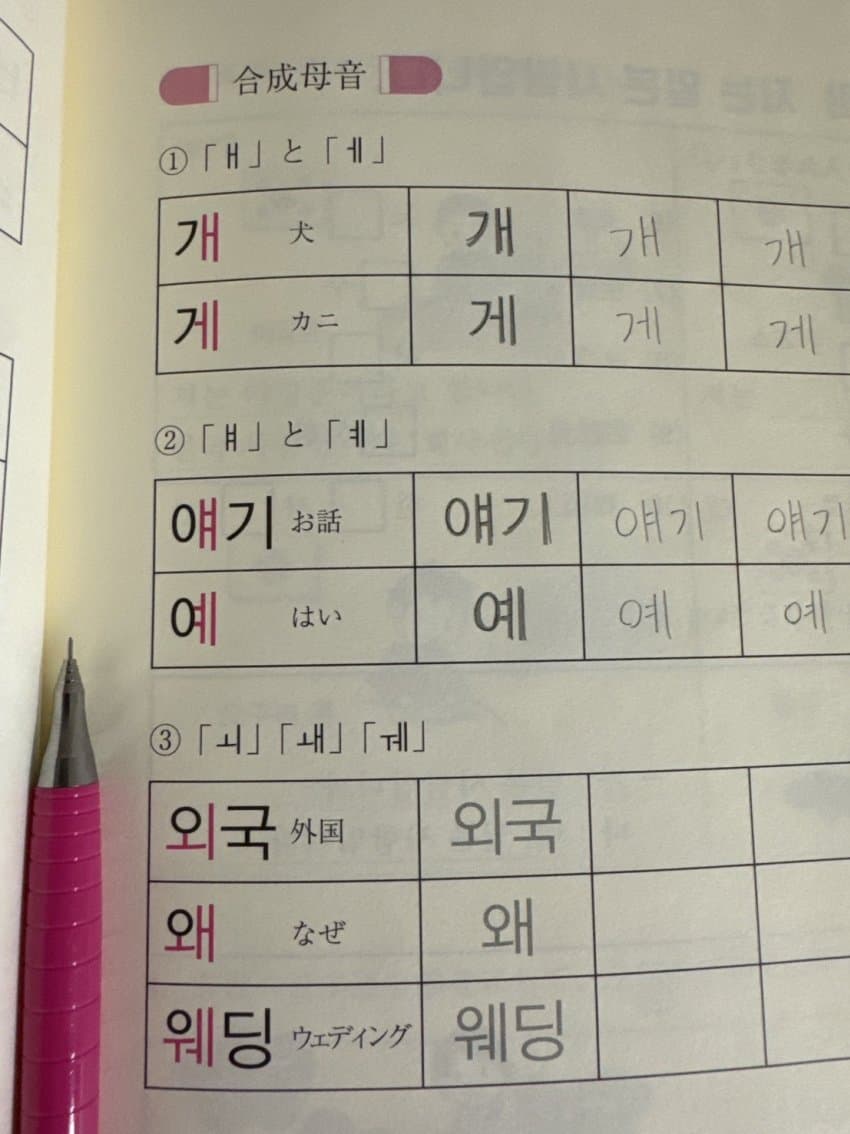 合成母音
①「ㅐ」と「ㅔ」
개 犬 개 개 개
게 カニ 게 게 게
②「ㅒ」と「ㅖ」
얘기 お話 얘기 얘기 얘기
예 はい 예 예 예
③「ㅚ」「ㅙ」「ㅞ」
외국 外国 외국
왜 なぜ 왜
웨딩 ウェディング 웨딩